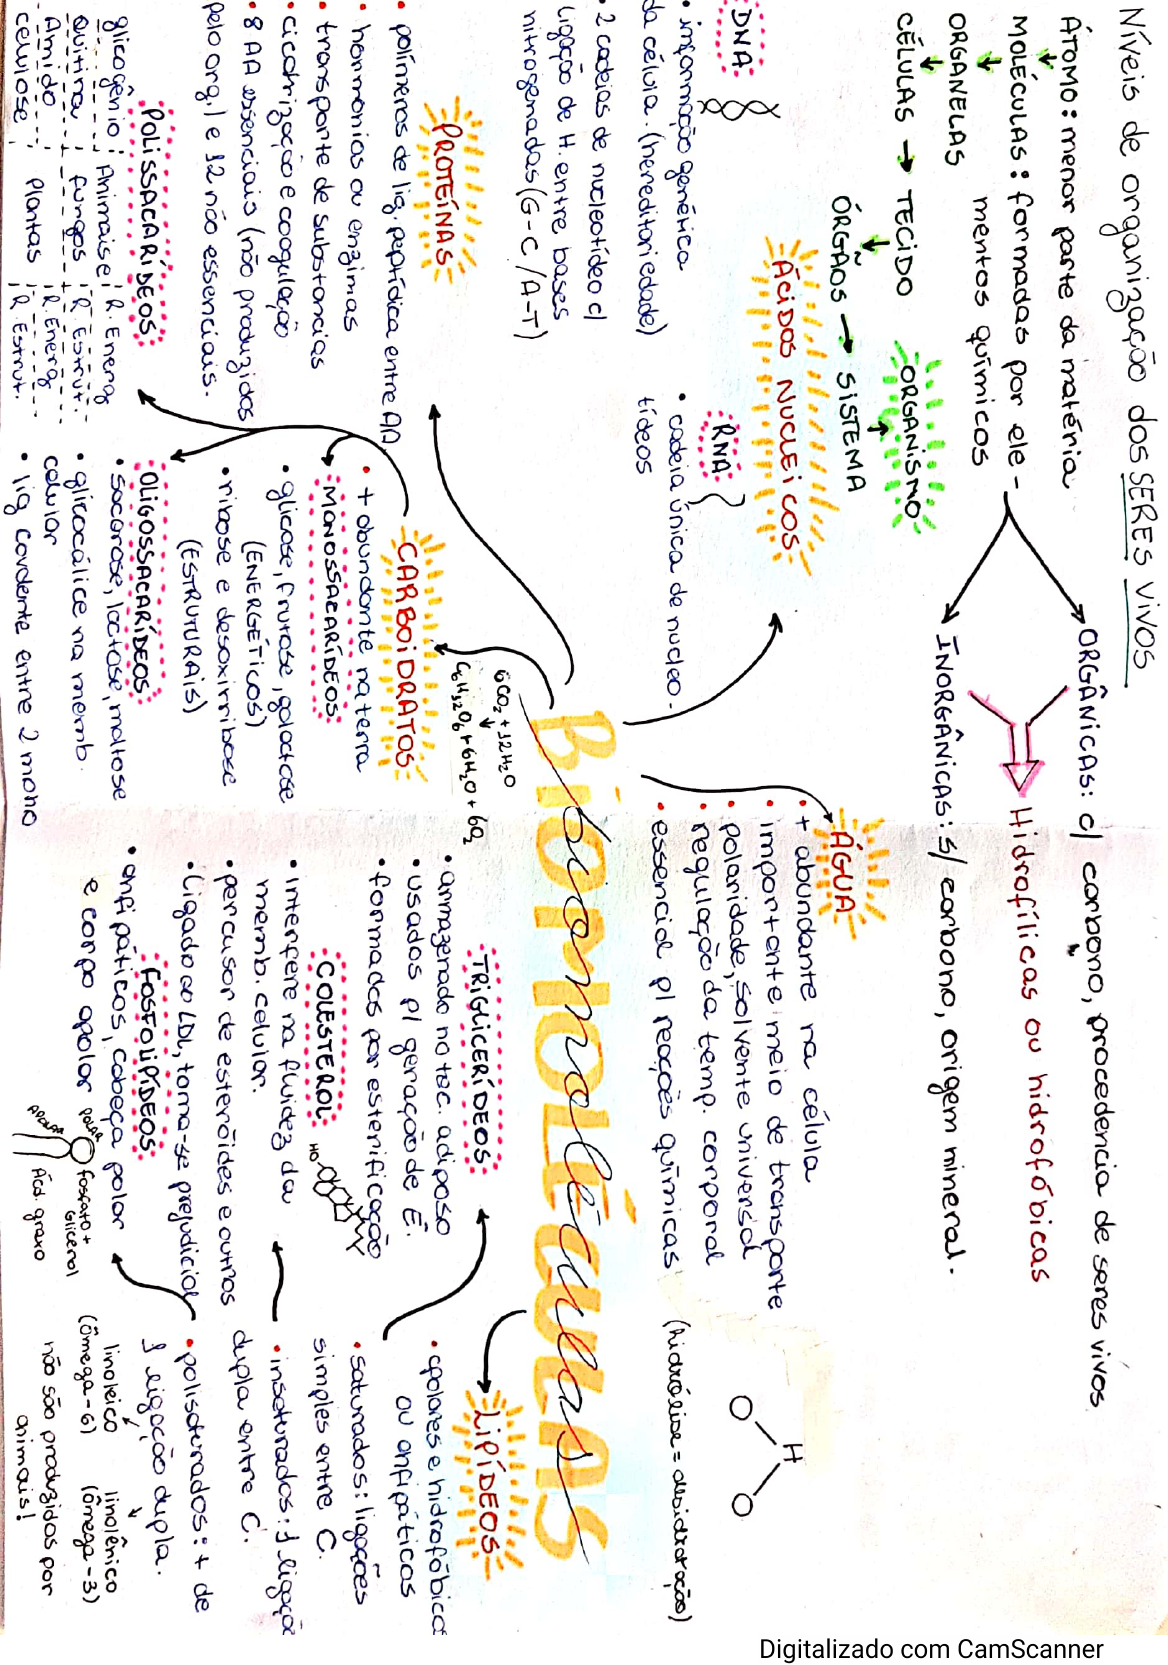 Níveis de organização dos SERES VIVOS
ÁTOMO: menor parte da matéria
MOLÉCULAS: formadas por ele-
mentos químicos
ORGANELAS
CÉLULAS → TECIDO
ÓRGÃOS → SISTEMA
ORGANISMO
ORGÂNICAS: c/ carbono, procedência de seres vivos
Hidrofílicas ou hidrofóbicas
INORGÂNICAS: s/ carbono, origem mineral.
ÁCIDOS NUCLEICOS
DNA
• informação genética
da célula. (hereditariedade)
• 2 cadeias de nucleotídeo c/
ligação de H. entre bases
nitrogenadas (G-C / A-T)
RNA
• cadeia única de nucleo-
tídeos
ÁGUA
• + abundante na célula
• importante meio de transporte
• polaridade, solvente universal
• regulação da temp. corporal
• essencial p/ reações químicas
(hidrólise = desidratação)
O H O
BIOMOLÉCULAS
Biomoléculas
PROTEÍNAS
• polímeros de lig. peptídica entre AA
• hormônios ou enzimas
• transporte de substancias
• cicatrização e coagulação
• 8 AA essenciais (não produzidos
pelo org.) e 12 não essenciais.
CARBOIDRATOS
6CO2 + 12H2O
C6H12O6 + 6H2O + 6O2
• + abundante na terra
MONOSSACARÍDEOS
• glicose, frutose, galactose
(ENERGÉTICOS)
• ribose e desoxirribose
(ESTRUTURAIS)
OLIGOSSACARÍDEOS
• sacarose, lactose, maltose
• glicocálice na memb.
celular
• lig covalente entre 2 mono
POLISSACARÍDEOS
glicogênio Animais e R. Energ
Quitina fungos R Estrut.
Amido Plantas R. Energ
celulose R. Estrut.
LIPÍDEOS
• apolares e hidrofóbicos
ou anfipáticos
• saturados: ligações
simples entre C.
• insaturados: 1 ligação
dupla entre C.
• polisaturados: + de
1 ligação dupla.
linoleico linolênico
(ômega-6) (ômega-3)
não são produzidos por
animais!
TRIGLICERÍDEOS
• armazenado no tec. adiposo
• usados p/ geração de E.
• formados por esterificação
COLESTEROL
HO
• interfere na fluidez da
memb. celular.
• percusor de esteróides e outros
• Ligado ao LDL, torna-se prejudicial
FOSFOLIPÍDEOS
• anfipáticos, cabeça polar
e corpo apolar
POLAR fosfato +
Glicerol
APOLAR Ácd. graxo
Digitalizado com CamScanner